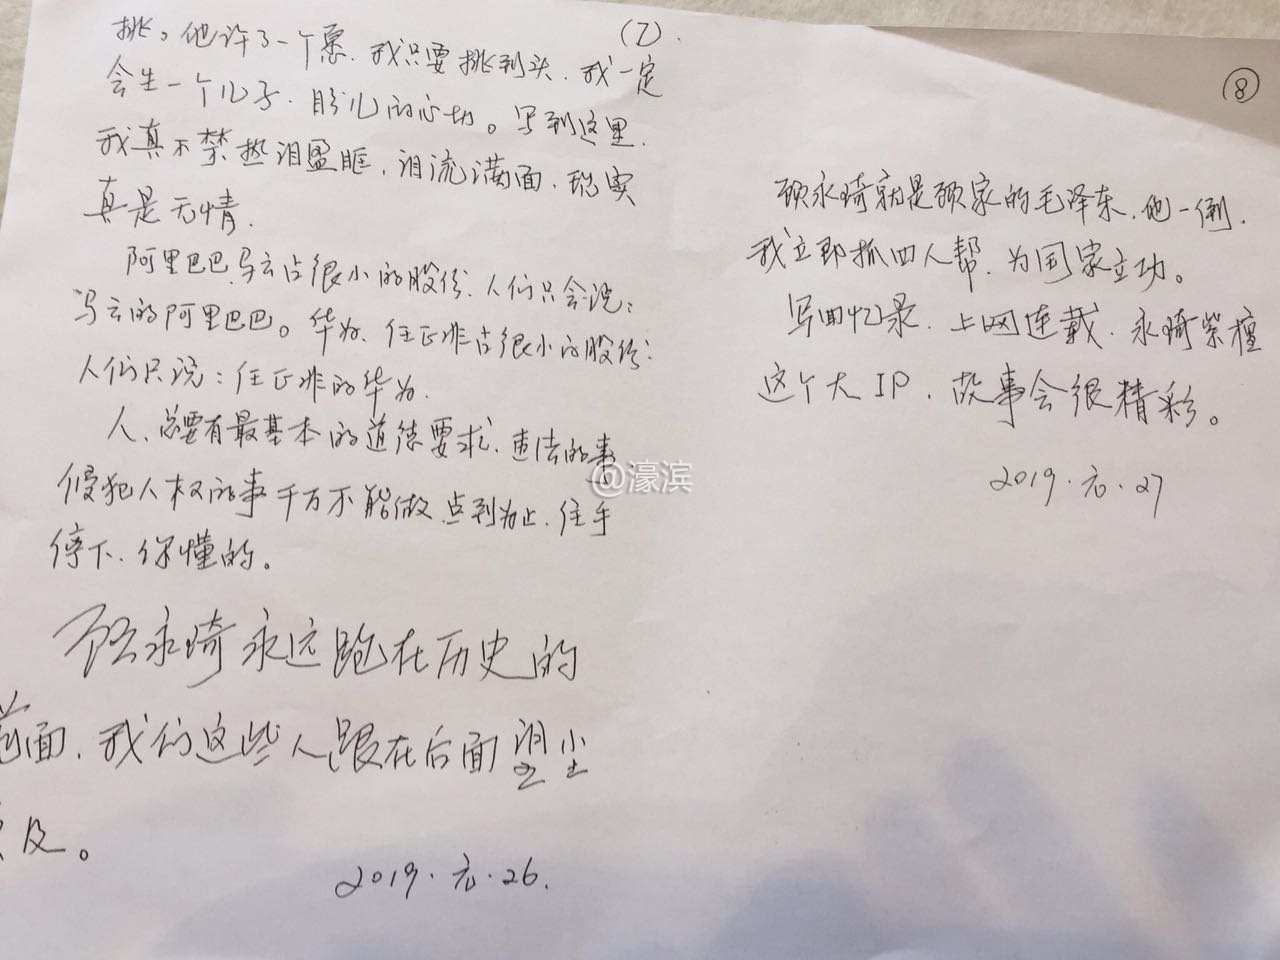 (7).
挑。他许了一个愿.我只要挑到头.我一定
会生一个儿子.盼儿的心切。写到这里.
我真不禁热泪盈眶.泪流满面.现实
真是无情.
阿里巴巴.马云占很小的股份.人们只会说：
马云的阿里巴巴。华为.任正非占很小的股份.
人们只说：任正非的华为.
人.总要有最基本的道德要求.违法的事
侵犯人权的事千万不能做.点到为止.住手
停下.你懂的。
顾永琦永远跑在历史的
前面.我们这些人跟在后面望尘
莫及。
2019.元.26.
⑧
顾永琦就是顾家的毛泽东.他一倒.
我立即抓四人帮.为国家立功。
写回忆录.上网连载.永琦紫檀
这个大IP.故事会很精彩。
2019.元.27
@濠滨